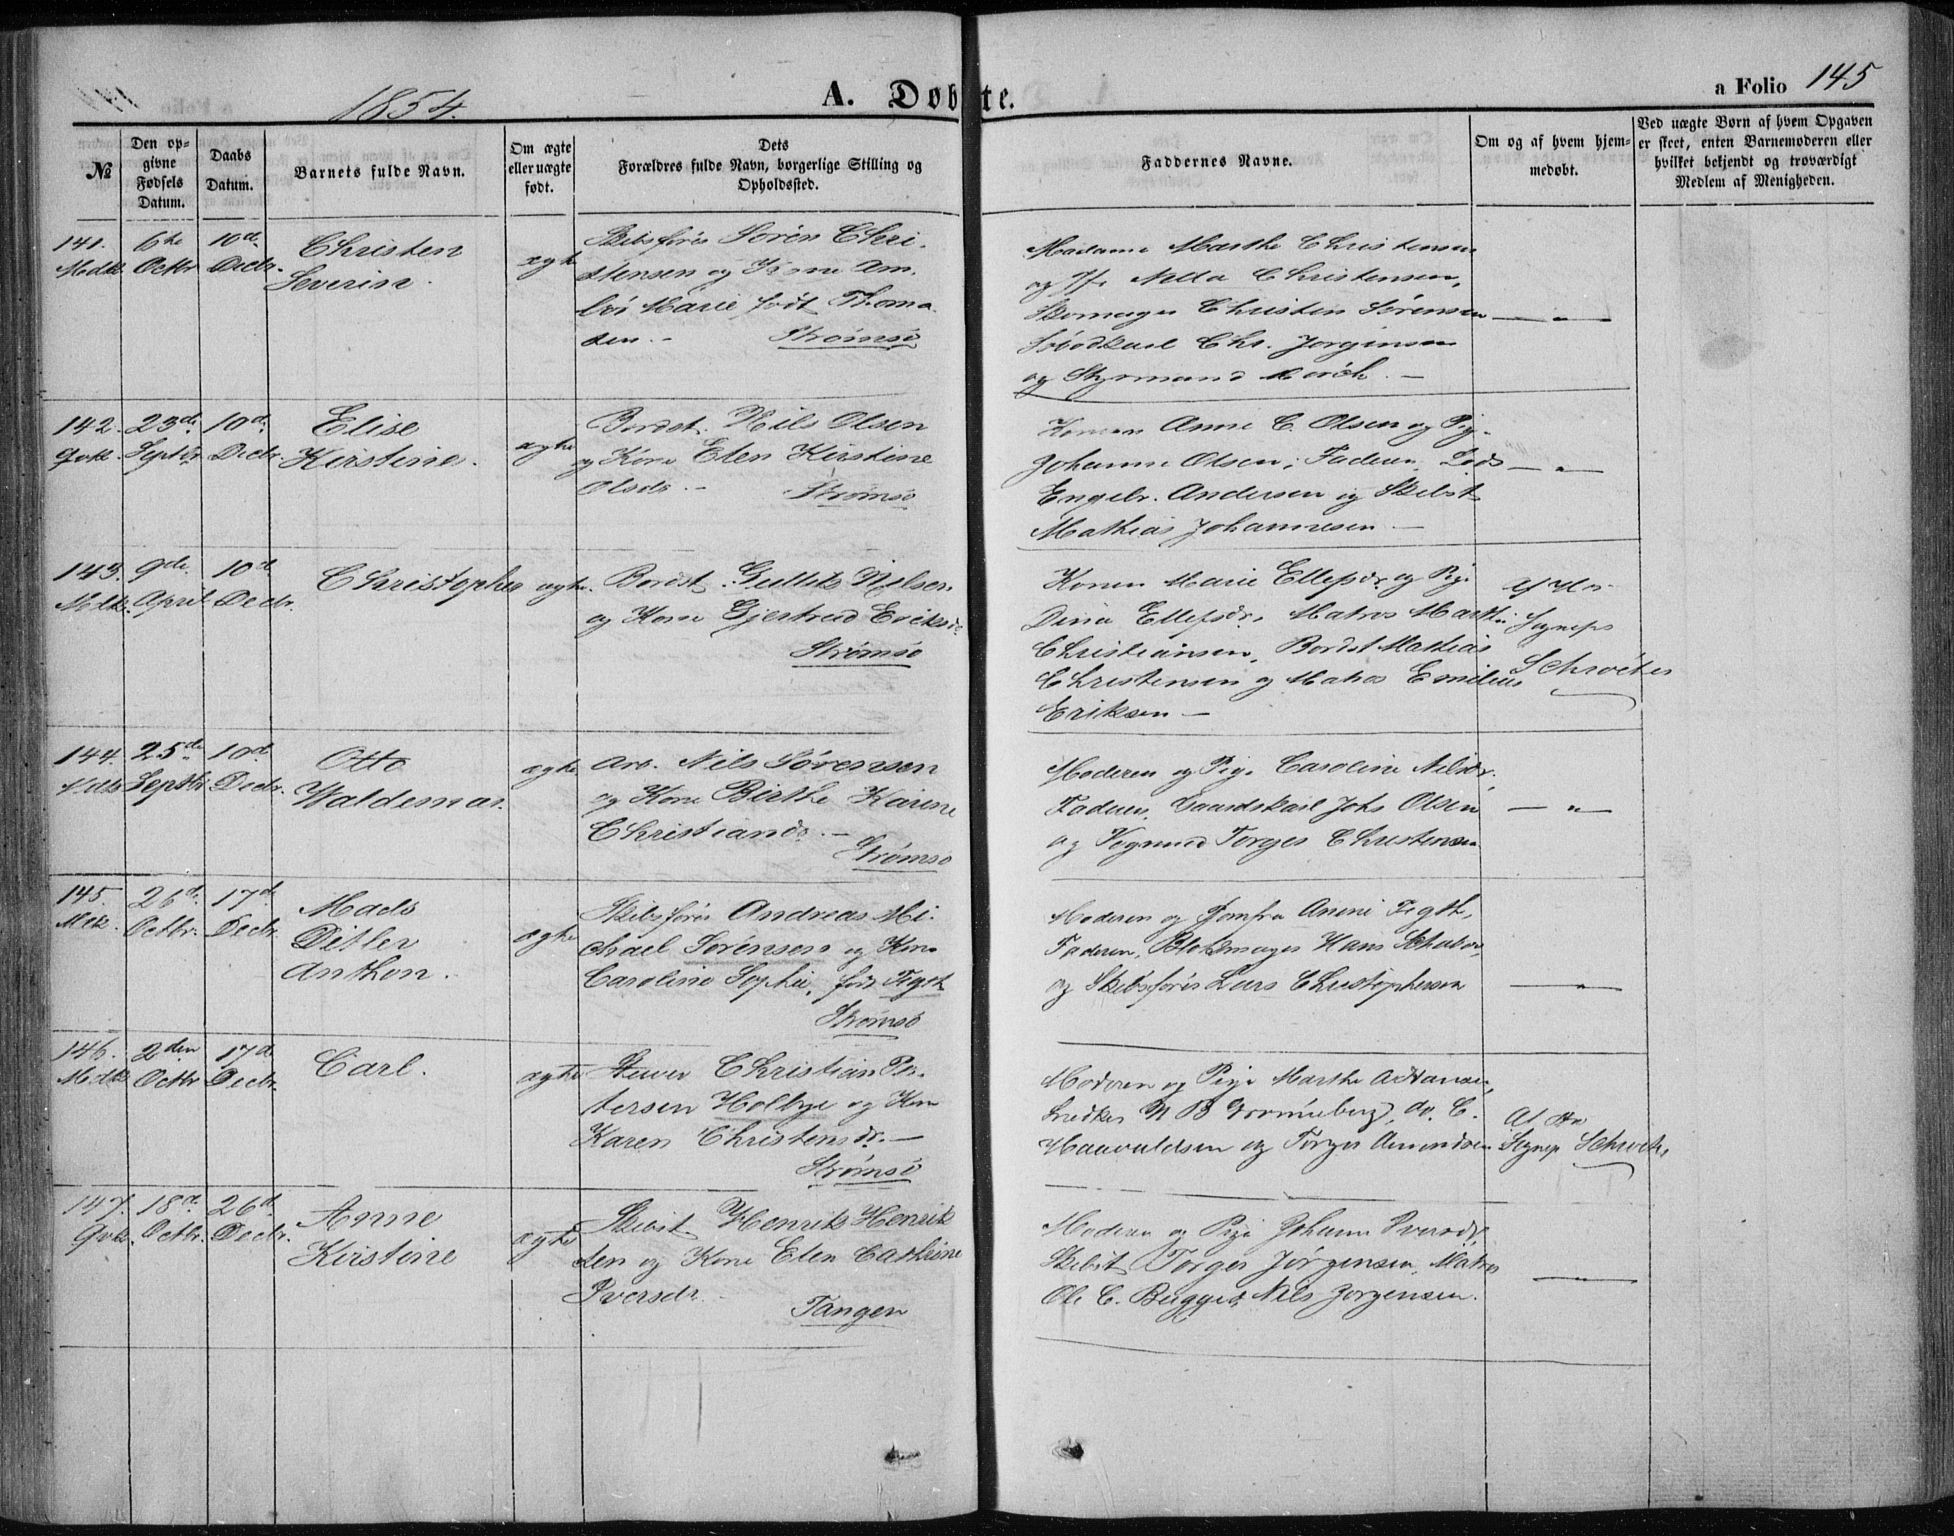 1854.
A. Døbte.
a Folio 145
№
Den op-
givne
Fødsels
Datum.
Daabs
Datum.
Barnets fulde Navn.
Om ægte
eller uægte
født.
Dets
Forældres fulde Navn, borgerlige Stilling og
Opholdssted.
Faddernes Navne.
Om og af hvem hjem-
medøbt.
Ved uægte Børn af hvem Opgaven
er skeet, enten Barnemoderen eller
hvilket bekjendt og troværdigt
Medlem af Menigheden.
141. 6te 10de
Mdk. Octbr Decbr.
Christen
Severin.
ægte
Skibsfører Sören Chri-
stensen og Kone Am-
Marie født Thoma-
sen.- Strømsø
Madame Marthe Christensen
og Christensen,
Christen Sörensen
Chr. Jörgensen
og Styrmand
— " —
142. 23de 10de
Qvk. Septbr. Decbr.
Elise
Kirstine.
ægte
Bordst. Nils Olsen
og Kone Elen Kirstine
Olsdr.- Strømsø
Konen Anne C. Olsen og Pig.
Johanne Olsen, Faderen, Lods
Engebr. Andersen og Skibst
Mathias Johannesen.—
— " —
143. 9de 10de
Mdk. April. Decbr.
Christopher
ægte.
Bordst. Nilsen
og Kone Gjertrud Eriksdr
Strømsø
Konen Marie Ellefsdr. og Pig.
Dina Ellefsdr. Matros
Christiansen, Bordst Mathias
Christensen og Matros Emilius
Eriksen —
af Hr
Sognep
Schröter
144. 25de 10de
Mdk Septbr Decbr.
Otto
Waldemar.
ægte
Arb. Nils Sörensen
og Kone Birthe Karine
Christiansdr.—
Strømsø
Moderen og Pige Caroline Nilsdr.
Faderen, Gaardskarl Johs Olsen
og Torger Christensen
— " —
145. 26de 17de
Mdk. Octbr. Decbr.
Mads
Ditler
Anthon.
ægte
Skibsfører Andreas Mi-
chael Sörensen og Kone
Caroline Sophie, født Figth
Strømsø
Moderen og Jomfru Figth,
Faderen, Blokmager Hans
og Skibsfører Lars Christophersen
— " —
146. 2den 17de
Mdk. Octbr Decbr.
Carl.
ægte
Christian Pe-
tersen Holbye og Kone
Karen Christensdr.—
Strømsø
Moderen og Pige Marthe Hansen,
Snedker Grønneberg, do. C.
Haavaldsen og Torger Amundsen
Af Hr
Sognep Schröter
147. 18de 26de
Qvk. Octbr. Decbr.
Anne
Kirstine
ægte
Skibst Henrik Henrik-
sen og Kone Elen Cathrine
Iversdr.
Tangen
Moderen og Pige Johanne Iversdr,
Skibst Torger Jörgensen, Matros
Ole C. Bugge, Nils Jörgensen.
— " —